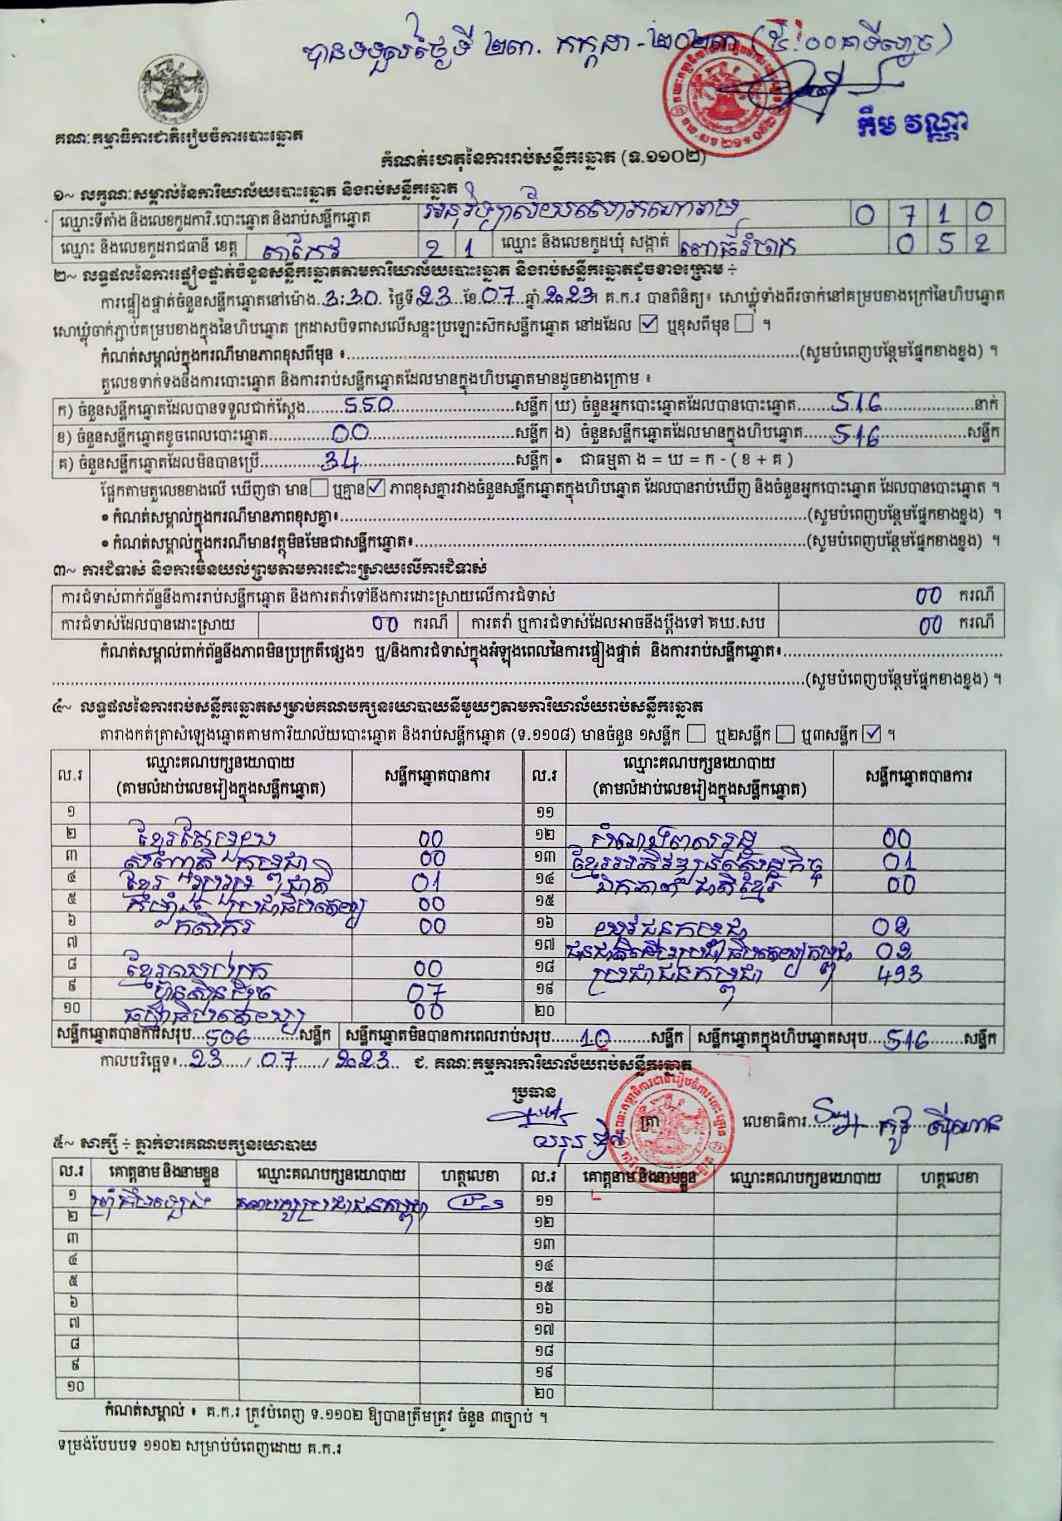 បានទទួលថ្ងៃទី ២៣. កក្កដា - ២០២៣ (៥:00នាទីល្ងាច)
កឹម វណ្ណា
គណៈកម្មាធិការជាតិរៀបចំការបោះឆ្នោត
កំណត់ហេតុនៃការរាប់សន្លឹកឆ្នោត (ទ.១១០២)
១~ លក្ខណៈសម្គាល់នៃការិយាល័យបោះឆ្នោត និងរាប់សន្លឹកឆ្នោត
ឈ្មោះទីតាំង និងលេខកូដការិ.បោះឆ្នោត និងរាប់សន្លឹកឆ្នោត អនុវិទ្យាល័យ 0 7 1 0
ឈ្មោះ និងលេខកូដរាជធានី ខេត្ត តាកែវ 2 1 ឈ្មោះ និងលេខកូដឃុំ សង្កាត់ ពោធិ៍រំចាក 0 5 2
២~ លទ្ធផលនៃការផ្ទៀងផ្ទាត់ចំនួនសន្លឹកឆ្នោតតាមការិយាល័យបោះឆ្នោត និងរាប់សន្លឹកឆ្នោតដូចខាងក្រោម ÷
ការផ្ទៀងផ្ទាត់ចំនួនសន្លឹកឆ្នោតនៅម៉ោង..3:30. ថ្ងៃទី23..ខែ.07..ឆ្នាំ.2023។ គ.ក.រ បានពិនិត្យ៖ សោឃ្លុំទាំងពីរចាក់នៅគម្របខាងក្រៅនៃហិបឆ្នោត
សោឃ្លុំចាក់ភ្ជាប់គម្របខាងក្នុងនៃហិបឆ្នោត ក្រដាសបិទពាសលើសន្ទះប្រឡោះស៊កសន្លឹកឆ្នោត នៅដដែល ☑ ឬខុសពីមុន ☐ ។
កំណត់សម្គាល់ក្នុងករណីមានភាពខុសពីមុន ៖...(សូមបំពេញបន្ថែមផ្នែកខាងខ្នង) ។
តួលេខទាក់ទងនឹងការបោះឆ្នោត និងការរាប់សន្លឹកឆ្នោតដែលមានក្នុងហិបឆ្នោតមានដូចខាងក្រោម ៖
ក) ចំនួនសន្លឹកឆ្នោតដែលបានទទួលជាក់ស្តែង...550...សន្លឹក ឃ) ចំនួនអ្នកបោះឆ្នោតដែលបានបោះឆ្នោត...516...នាក់
ខ) ចំនួនសន្លឹកឆ្នោតខូចពេលបោះឆ្នោត...00...សន្លឹក ង) ចំនួនសន្លឹកឆ្នោតដែលមានក្នុងហិបឆ្នោត...516...សន្លឹក
គ) ចំនួនសន្លឹកឆ្នោតដែលមិនបានប្រើ...34...សន្លឹក • ជាធម្មតា ង = ឃ = ក - ( ខ + គ )
ផ្អែកតាមតួលេខខាងលើ ឃើញថា មាន ☐ ឬគ្មាន ☑ ភាពខុសគ្នារវាងចំនួនសន្លឹកឆ្នោតក្នុងហិបឆ្នោត ដែលបានរាប់ឃើញ និងចំនួនអ្នកបោះឆ្នោត ដែលបានបោះឆ្នោត ។
• កំណត់សម្គាល់ក្នុងករណីមានភាពខុសគ្នា៖...(សូមបំពេញបន្ថែមផ្នែកខាងខ្នង) ។
• កំណត់សម្គាល់ក្នុងករណីមានវត្ថុមិនមែនជាសន្លឹកឆ្នោត៖...(សូមបំពេញបន្ថែមផ្នែកខាងខ្នង) ។
៣~ ការជំទាស់ និងការមិនយល់ព្រមតាមការដោះស្រាយលើការជំទាស់
ការជំទាស់ពាក់ព័ន្ធនឹងការរាប់សន្លឹកឆ្នោត និងការតវ៉ាទៅនឹងការដោះស្រាយលើការជំទាស់ 00 ករណី
ការជំទាស់ដែលបានដោះស្រាយ 00 ករណី ការតវ៉ា ឬការជំទាស់ដែលអាចនឹងប្តឹងទៅ គឃ.សប 00 ករណី
កំណត់សម្គាល់ពាក់ព័ន្ធនឹងភាពមិនប្រក្រតីផ្សេងៗ ឬ/និងការជំទាស់ក្នុងអំឡុងពេលនៃការផ្ទៀងផ្ទាត់ និងការរាប់សន្លឹកឆ្នោត៖...
...(សូមបំពេញបន្ថែមផ្នែកខាងខ្នង) ។
៤~ លទ្ធផលនៃការរាប់សន្លឹកឆ្នោតសម្រាប់គណបក្សនយោបាយនីមួយៗតាមការិយាល័យរាប់សន្លឹកឆ្នោត
តារាងកត់ត្រាសំឡេងឆ្នោតតាមការិយាល័យបោះឆ្នោត និងរាប់សន្លឹកឆ្នោត (ទ.១១០៨) មានចំនួន ១សន្លឹក ☐ ឬ២សន្លឹក ☐ ឬ៣សន្លឹក ☑ ។
ល.រ ឈ្មោះគណបក្សនយោបាយ សន្លឹកឆ្នោតបានការ ល.រ ឈ្មោះគណបក្សនយោបាយ សន្លឹកឆ្នោតបានការ
(តាមលំដាប់លេខរៀងក្នុងសន្លឹកឆ្នោត) (តាមលំដាប់លេខរៀងក្នុងសន្លឹកឆ្នោត)
១ ១១
២ ខ្មែរតែមួយ 00 ១២ 00
៣ សញ្ជាតិកម្ពុជា 00 ១៣ ខ្មែរអភិវឌ្ឍន៍សេដ្ឋកិច្ច 01
៤ ខ្មែររួបរួមជាតិ 01 ១៤ ឯកភាពជាតិខ្មែរ 00
៥ កំលាំងប្រជាធិបតេយ្យ 00 ១៥
៦ កសិករ 00 ១៦ យុវជនកម្ពុជា 02
៧ ១៧ ជនជាតិដើមប្រជាធិបតេយ្យកម្ពុជា 02
៨ ខ្មែរឈប់ក្រ 00 ១៨ ប្រជាជនកម្ពុជា 493
៩ ហ៊្វុនស៊ិនប៉ិច 07 ១៩
១០ ធម្មាធិបតេយ្យ 00 ២០
សន្លឹកឆ្នោតបានការសរុប...506...សន្លឹក សន្លឹកឆ្នោតមិនបានការពេលរាប់សរុប...10...សន្លឹក សន្លឹកឆ្នោតក្នុងហិបឆ្នោតសរុប...516...សន្លឹក
កាលបរិច្ឆេទ៖..23.../.07.../2023.. ជ. គណៈកម្មការការិយាល័យរាប់សន្លឹកឆ្នោត
ប្រធាន
ត្រា លេខាធិការ
៥~ សាក្សី ÷ ភ្នាក់ងារគណបក្សនយោបាយ
ល.រ គោត្តនាម និងនាមខ្លួន ឈ្មោះគណបក្សនយោបាយ ហត្ថលេខា ល.រ គោត្តនាម និងនាមខ្លួន ឈ្មោះគណបក្សនយោបាយ ហត្ថលេខា
១ គណបក្សប្រជាជនកម្ពុជា ១១
២ ១២
៣ ១៣
៤ ១៤
៥ ១៥
៦ ១៦
៧ ១៧
៨ ១៨
៩ ១៩
១០ ២០
កំណត់សម្គាល់ ៖ គ.ក.រ ត្រូវបំពេញ ទ.១១០២ ឱ្យបានត្រឹមត្រូវ ចំនួន ៣ច្បាប់ ។
ទម្រង់បែបបទ ១១០២ សម្រាប់បំពេញដោយ គ.ក.រ